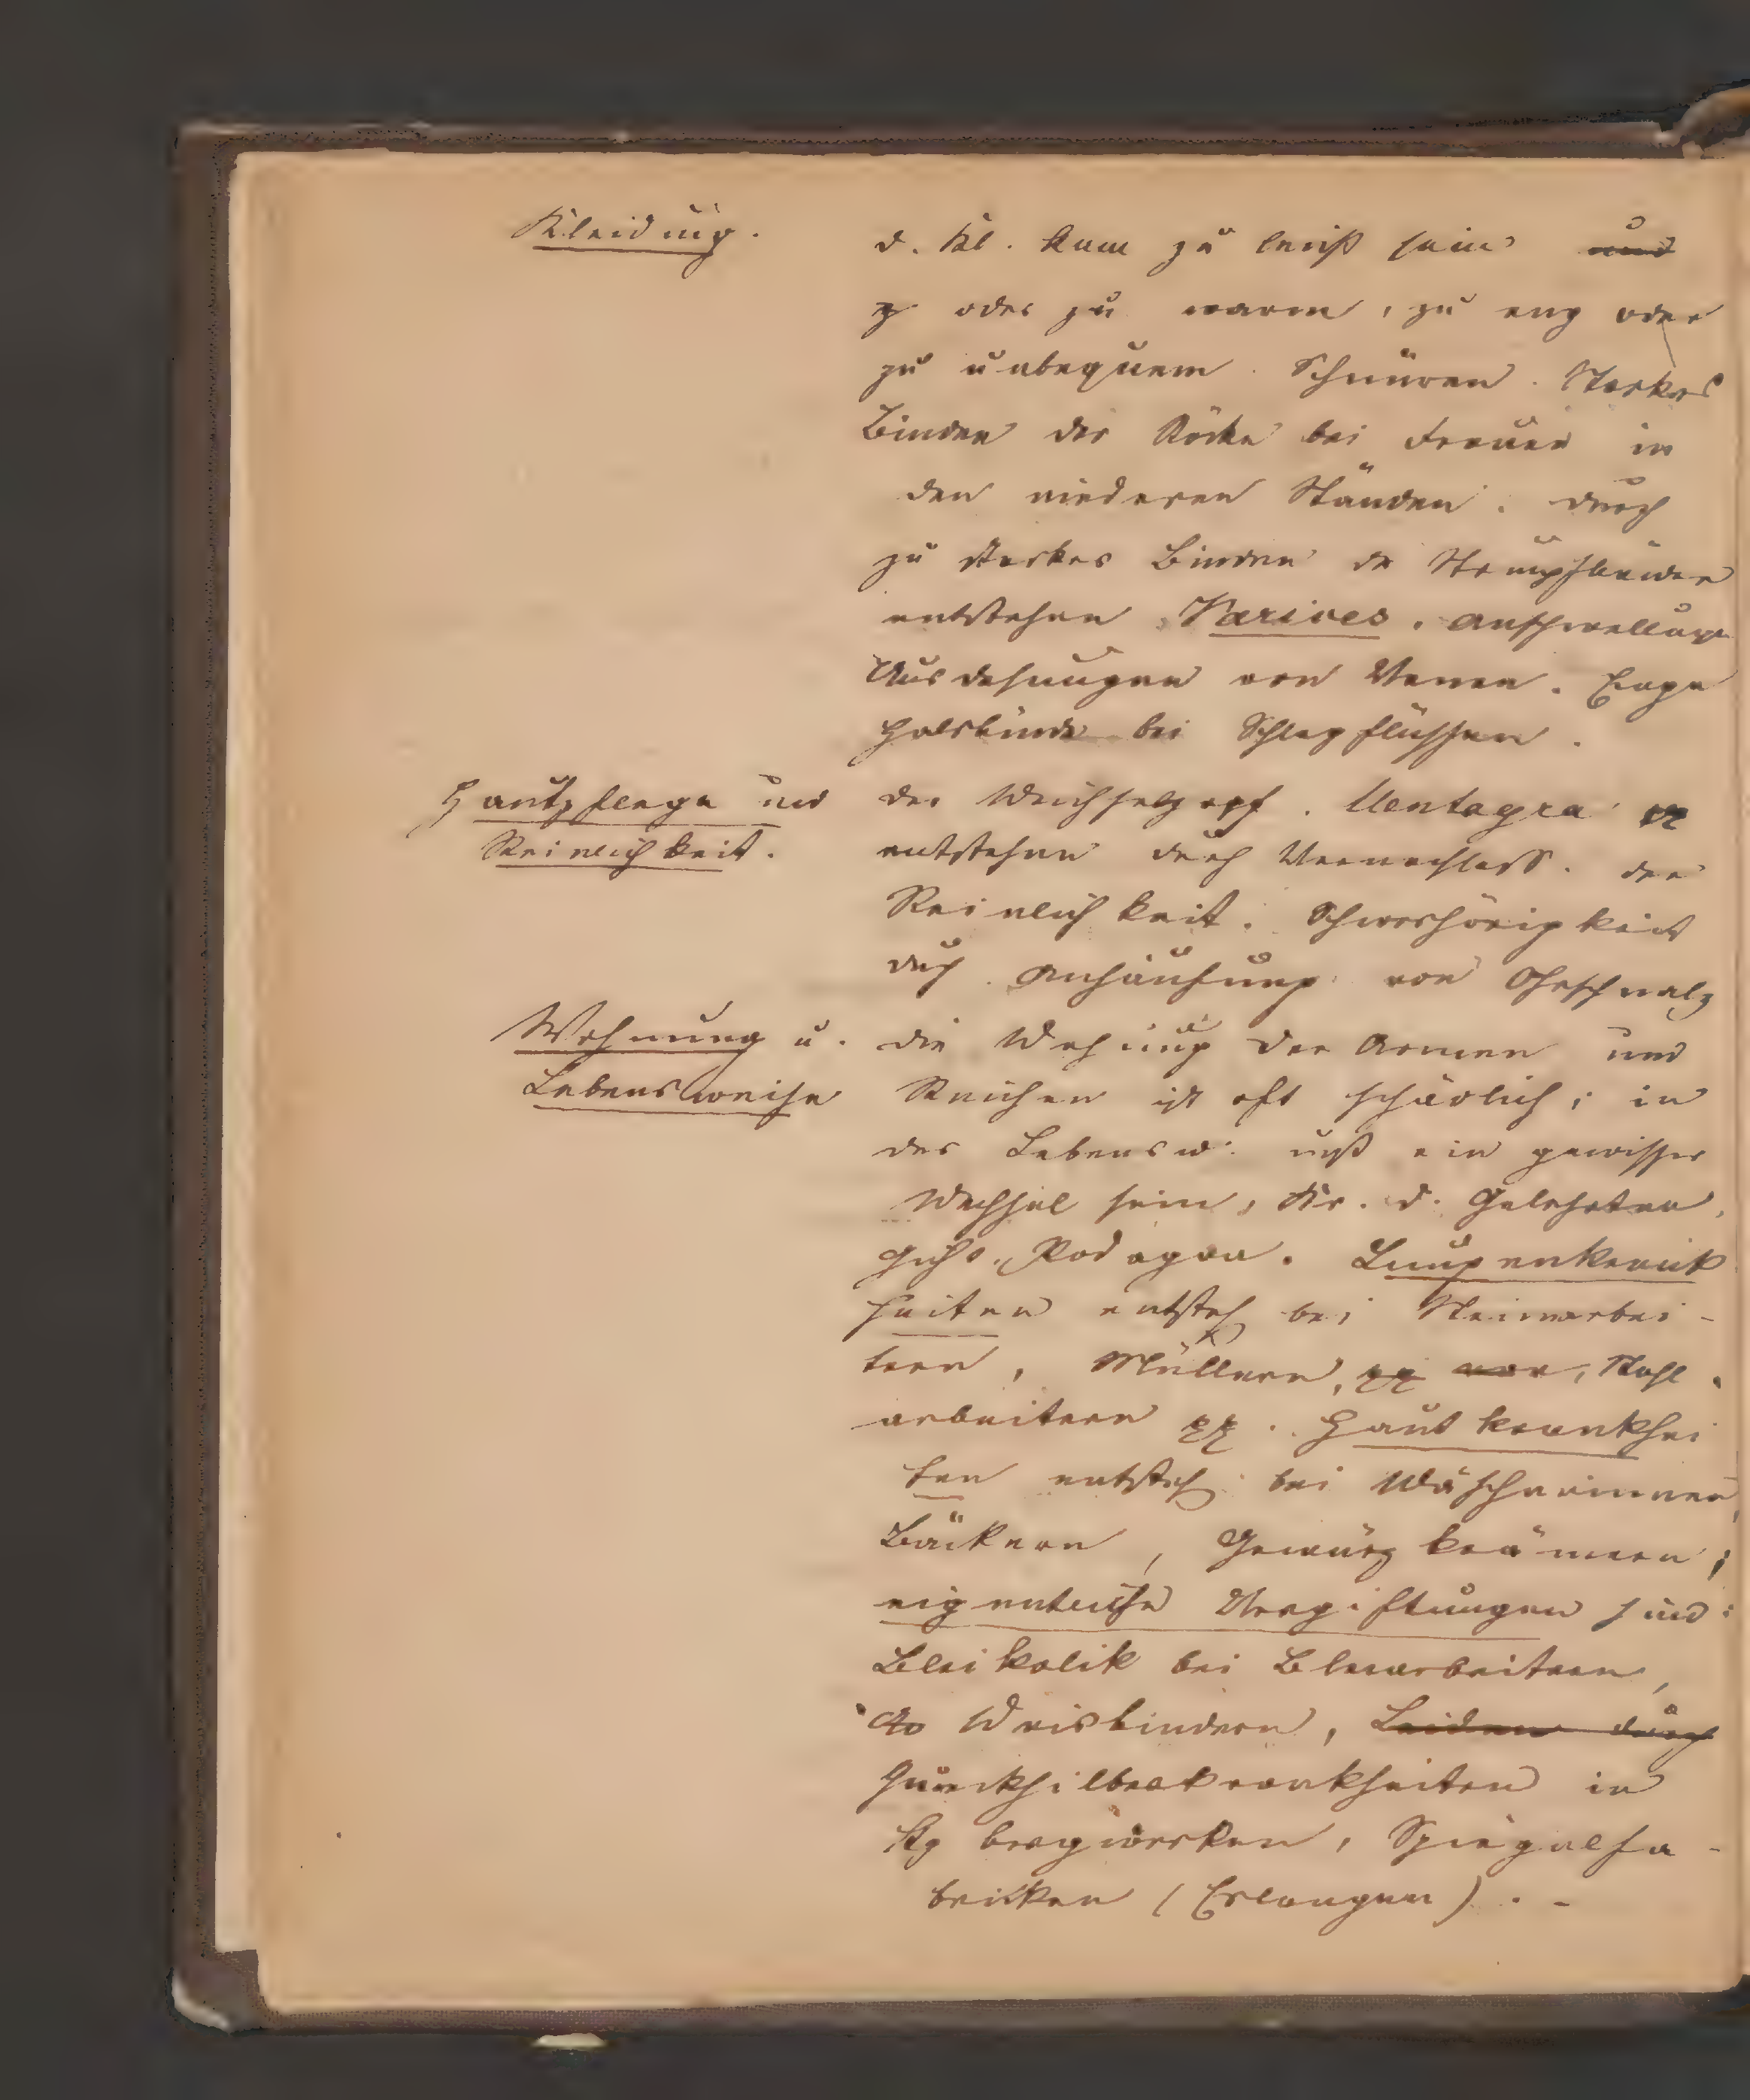 Kleidung.
d. Kl. kann zu leicht sein und
z oder zu warm, zu eng oder
zu unbequem. Schnüren. Starkes
Binden der Röcke bei Frauen in
den niederen Ständen. durch
zu starkes Binden der Strumpfbänder
entstehen Varices. Anschwellungen
Ausdehnungen von Venen. Enge
Halsbinde bei Schlagflüssen.
Hautpflege und
Reinlichkeit.
der Weichselzopf. Mentagra
entstehen durch Vernachläss. der
Reinlichkeit. Schwerhörigkeit
durch Anhäufung von Ohrschmalz
Wohnung u.
Lebensweise
die Wohnung der Armen und
Reichen ist oft schädlich; in
der Lebensw. muß ein gewisser
Wechsel sein, Kr. d. Gelehrten,
Gicht, Podagra. Lungenkrank
heiten entsteh. bei Steinarbei-
tern, Müllern, Stahl
arbeitern pp. Hautkrankhei
ten entsteh. bei Wäscherinnen,
Bäckern, Gewürzkrämern;
eigentliche Vergiftungen sind:
Bleikolik bei Bleiarbeitern,
Weisbindern, Leiden durch
Quecksilberkrankheiten in
bergwerken, Spiegelfa-
briken (Erlangen). -